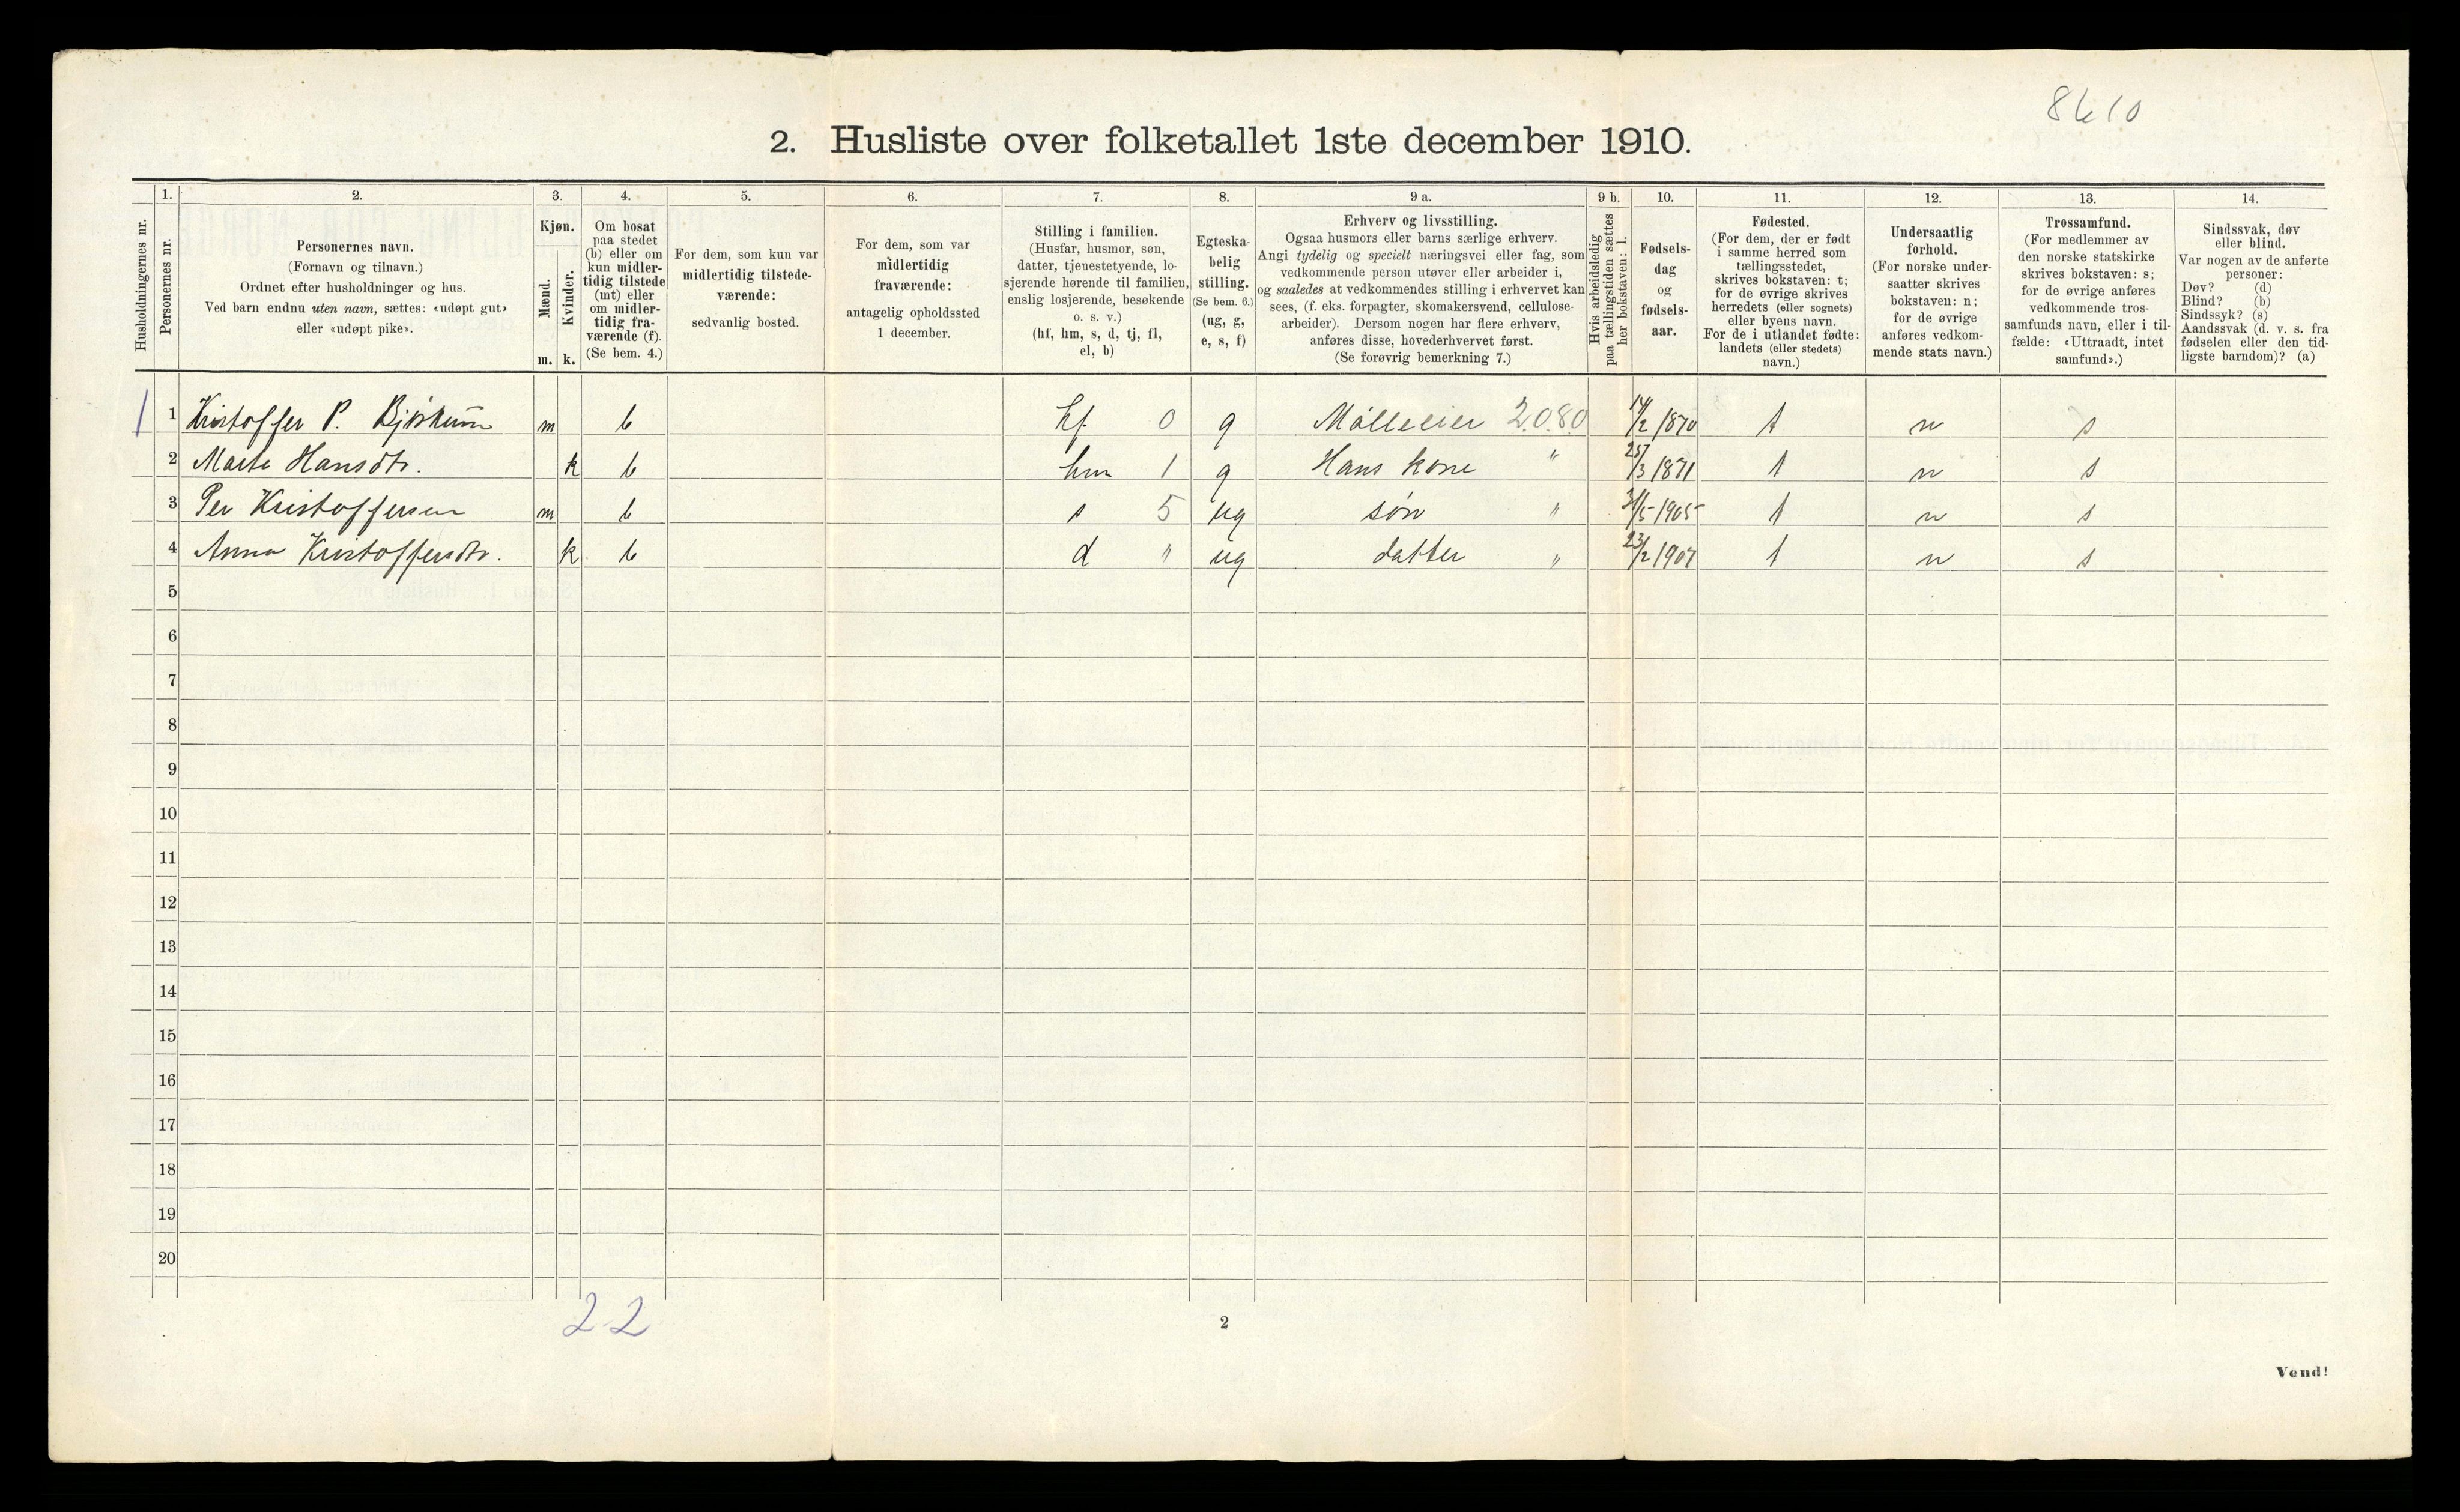 8610
2. Husliste over folketallet 1ste december 1910.
Husholdningernes nr.
1.
Personernes nr.
2.
Personernes navn.
(Fornavn og tilnavn.)
Ordnet efter husholdninger og hus.
Ved barn endnu uten navn, sættes: «udøpt gut»
eller «udøpt pike».
3.
Kjøn.
Mænd.
Kvinder.
m. k.
4.
Om bosat
paa stedet
(b) eller om
kun midler-
tidig tilstede
(mt) eller
om midler-
tidig fra-
værende (f).
(Se bem. 4.)
5.
For dem, som kun var
midlertidig tilstede-
værende:
sedvanlig bosted.
6.
For dem, som var
midlertidig
fraværende:
antagelig opholdssted
1 december.
7.
Stilling i familien.
(Husfar, husmor, søn,
datter, tjenestetyende, lo-
sjerende hørende til familien,
enslig losjerende, besøkende
o. s. v.)
(hf, hm, s, d, tj, fl,
el, b)
8.
Egteska-
belig
stilling.
(Se bem. 6.)
(ug, g,
e, s, f)
9 a.
Erhverv og livsstilling.
Ogsaa husmors eller barns særlige erhverv.
Angi tydelig og specielt næringsvei eller fag, som
vedkommende person utøver eller arbeider i,
og saaledes at vedkommendes stilling i erhvervet kan
sees, (f. eks. forpagter, skomakersvend, cellulose-
arbeider). Dersom nogen har flere erhverv,
anføres disse, hovederhvervet først.
(Se forøvrig bemerkning 7.)
9 b.
Hvis arbeidsledig
paa tællingstiden sættes
her bokstaven: l.
10.
Fødsels-
dag
og
fødsels-
aar.
11.
Fødested.
(For dem, der er født
i samme herred som
tællingsstedet,
skrives bokstaven: t;
for de øvrige skrives
herredets (eller sognets)
eller byens navn.
For de i utlandet fødte:
landets (eller stedets)
navn.)
12.
Undersaatlig
forhold.
(For norske under-
saatter skrives
bokstaven: n;
for de øvrige
anføres vedkom-
mende stats navn.)
13.
Trossamfund.
(For medlemmer av
den norske statskirke
skrives bokstaven: s;
for de øvrige anføres
vedkommende tros-
samfunds navn, eller i til-
fælde: «Uttraadt, intet
samfund».)
14.
Sindssvak, døv
eller blind.
Var nogen av de anførte
personer:
Døv? (d)
Blind? (b)
Sindssyk? (s)
Aandssvak (d. v. s. fra
fødselen eller den tid-
ligste barndom)? (a)
1 1 Kristoffer P. m b hf 0 g Mølleeier 2.0.80 14/2 1870 t n s
2 Marte Hansdtr. k b hm 1 g Hans kone " 25/3 1871 t n s
3 Per Kristoffersen m b s 5 ug søn " 31/5 1905 t n s
4 Anna Kristoffersdtr. k b d " ug datter " 23/2 1907 t n s
5
6
7
8
9
10
11
12
13
14
15
16
17
18
19
20
2 2
2
Vend!